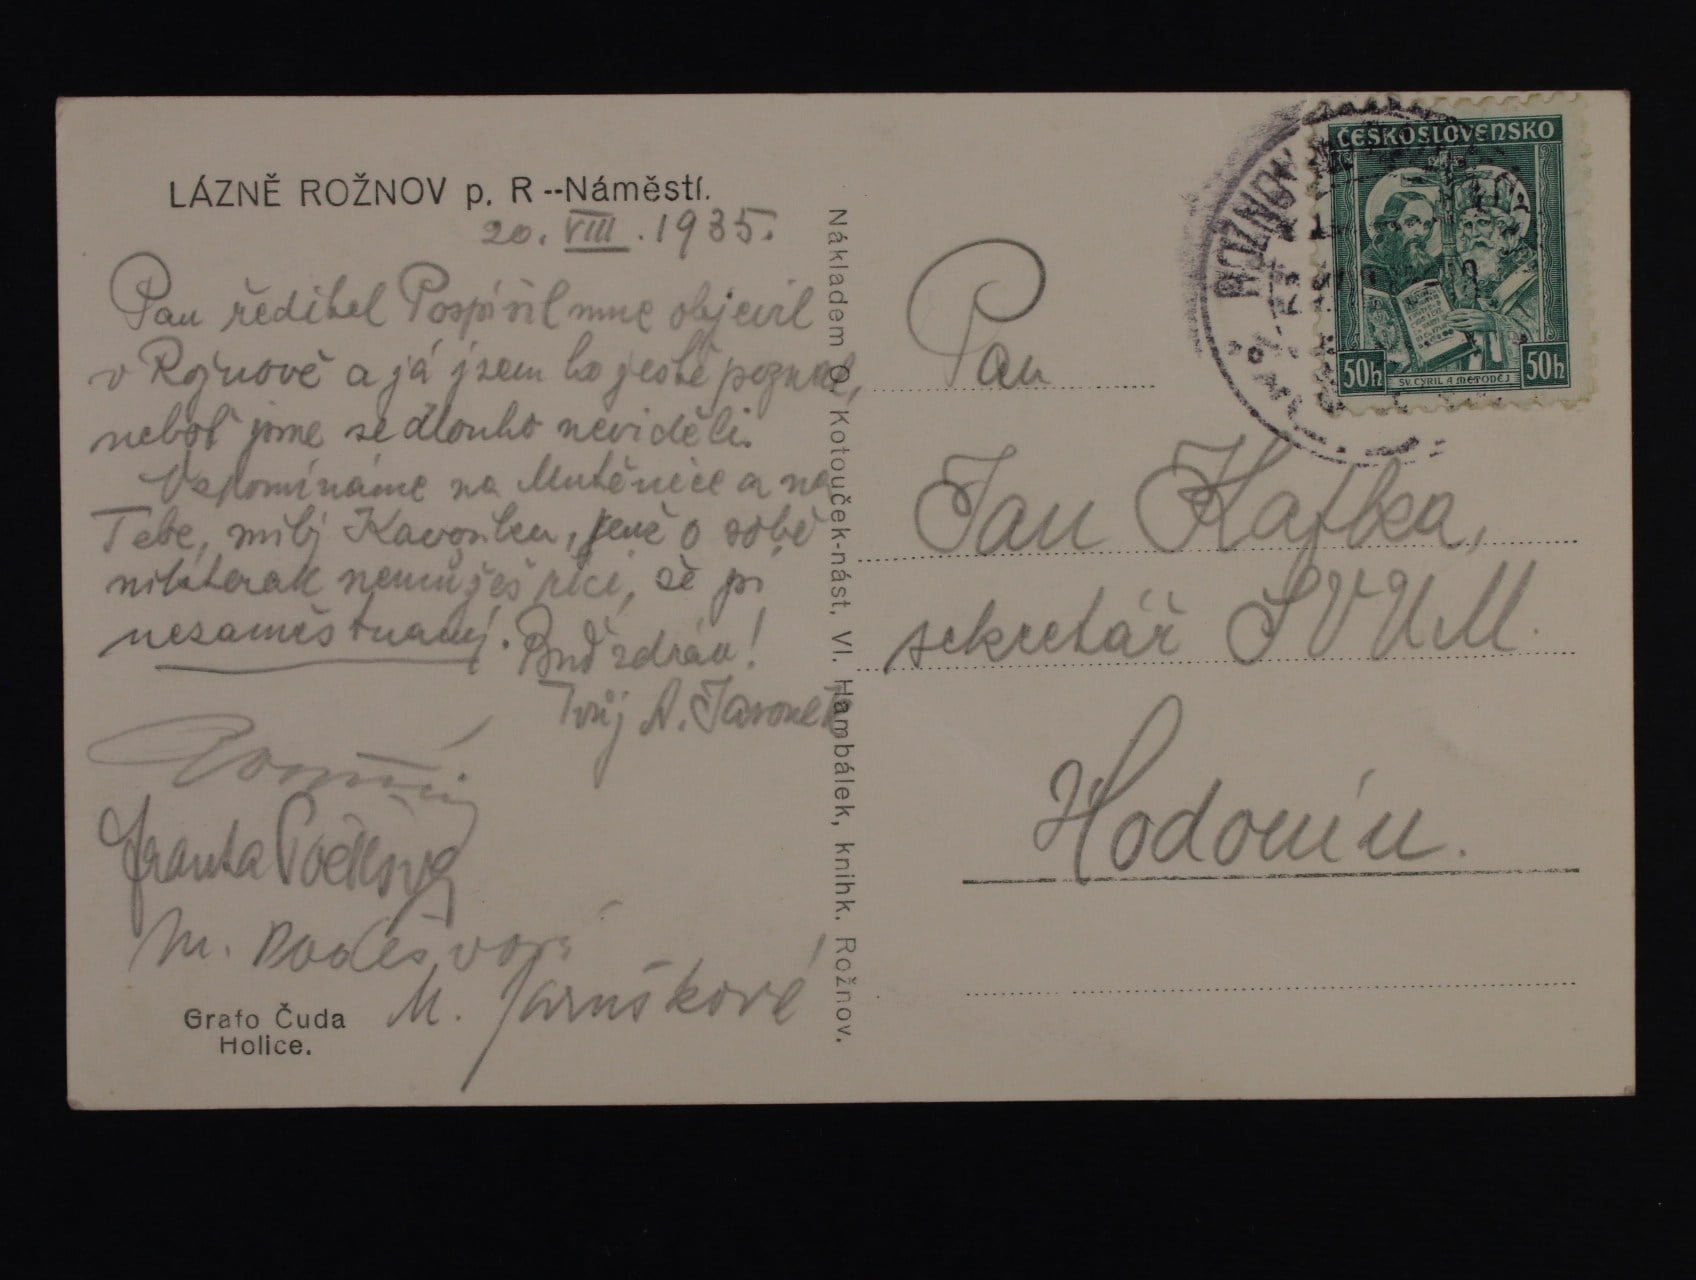 LÁZNĚ ROŽNOV p. R --Náměstí.
20. VIII. 1935.
Pan ředitel Pospíšil mne objevil
v Rožnově a já jsem ho ještě poznal,
neboť jsme se dlouho neviděli.
Vzpomínáme na Mutěnice a na
Tebe, milý, jenž o sobě
nikterak nemůžeš říci, že jsi
nezaměstnaný. Buď zdráv!
Tvůj A. Jaronek
Franta
M.
M. Jarušková
Grafo Čuda
Holice.
Nákladem O. Kotouček-nást. Vl. Hambálek, knihk. Rožnov.
ČESKOSLOVENSKO
50h SV. CYRIL A METODĚJ 50h
ROŽNOV
Pan
Jan Kafka,
sekretář SVUM.
Hodonín.